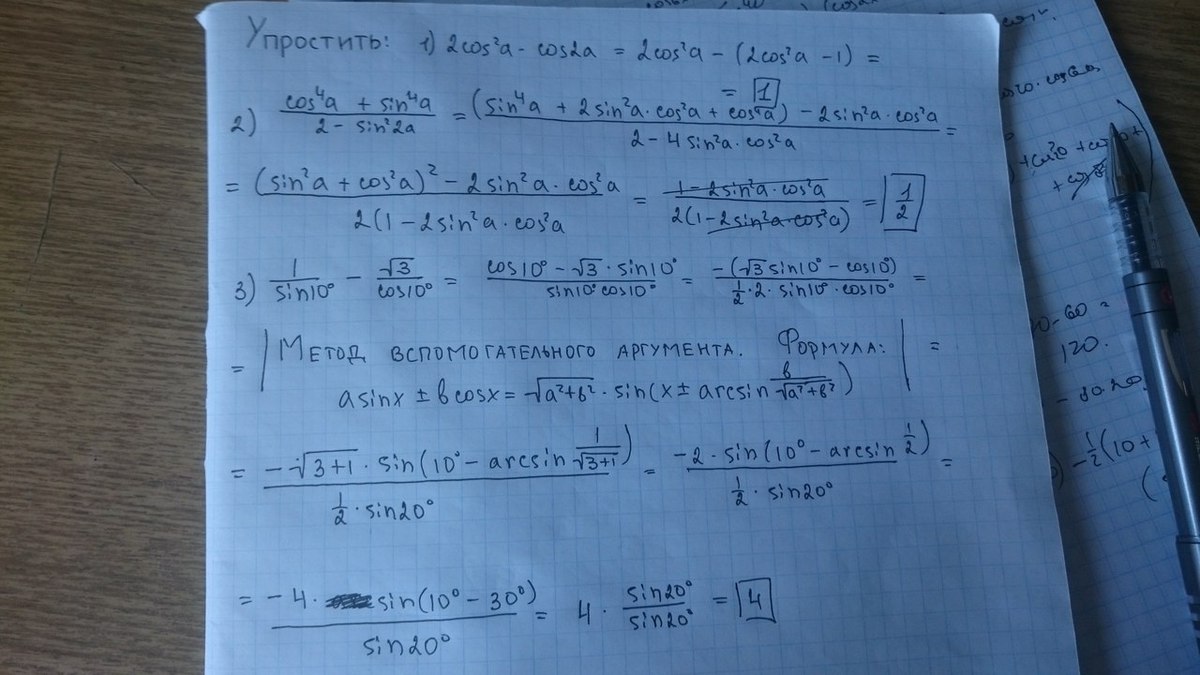 Упростить: 1) 2cos²a - cos2a = 2cos²a - (2cos²a - 1) =
= 1
2) (cos⁴a + sin⁴a)/(2 - sin²2a) = ((sin⁴a + 2sin²a·cos²a + cos⁴a) - 2sin²a·cos²a)/(2 - 4sin²a·cos²a) =
= ((sin²a + cos²a)² - 2sin²a·cos²a)/(2(1 - 2sin²a·cos²a) = (1 - 2sin²a·cos²a)/(2(1 - 2sin²a·cos²a)) = 1/2
3) 1/sin10° - √3/cos10° = (cos10° - √3·sin10°)/(sin10°cos10°) = (-(√3sin10° - cos10°))/(1/2·2·sin10°·cos10°) =
= | Метод вспомогательного аргумента. Формула: | =
asinx ± bcosx = √(a²+b²)·sin(x ± arcsin b/√(a²+b²))
= (-√(3+1)·sin(10° - arcsin 1/√(3+1)))/(1/2·sin20°) = (-2·sin(10° - arcsin 1/2))/(1/2·sin20°) =
= (-4·sin(10° - 30°))/sin20° = 4·sin20°/sin20° = 4
120.
-1/2(10+